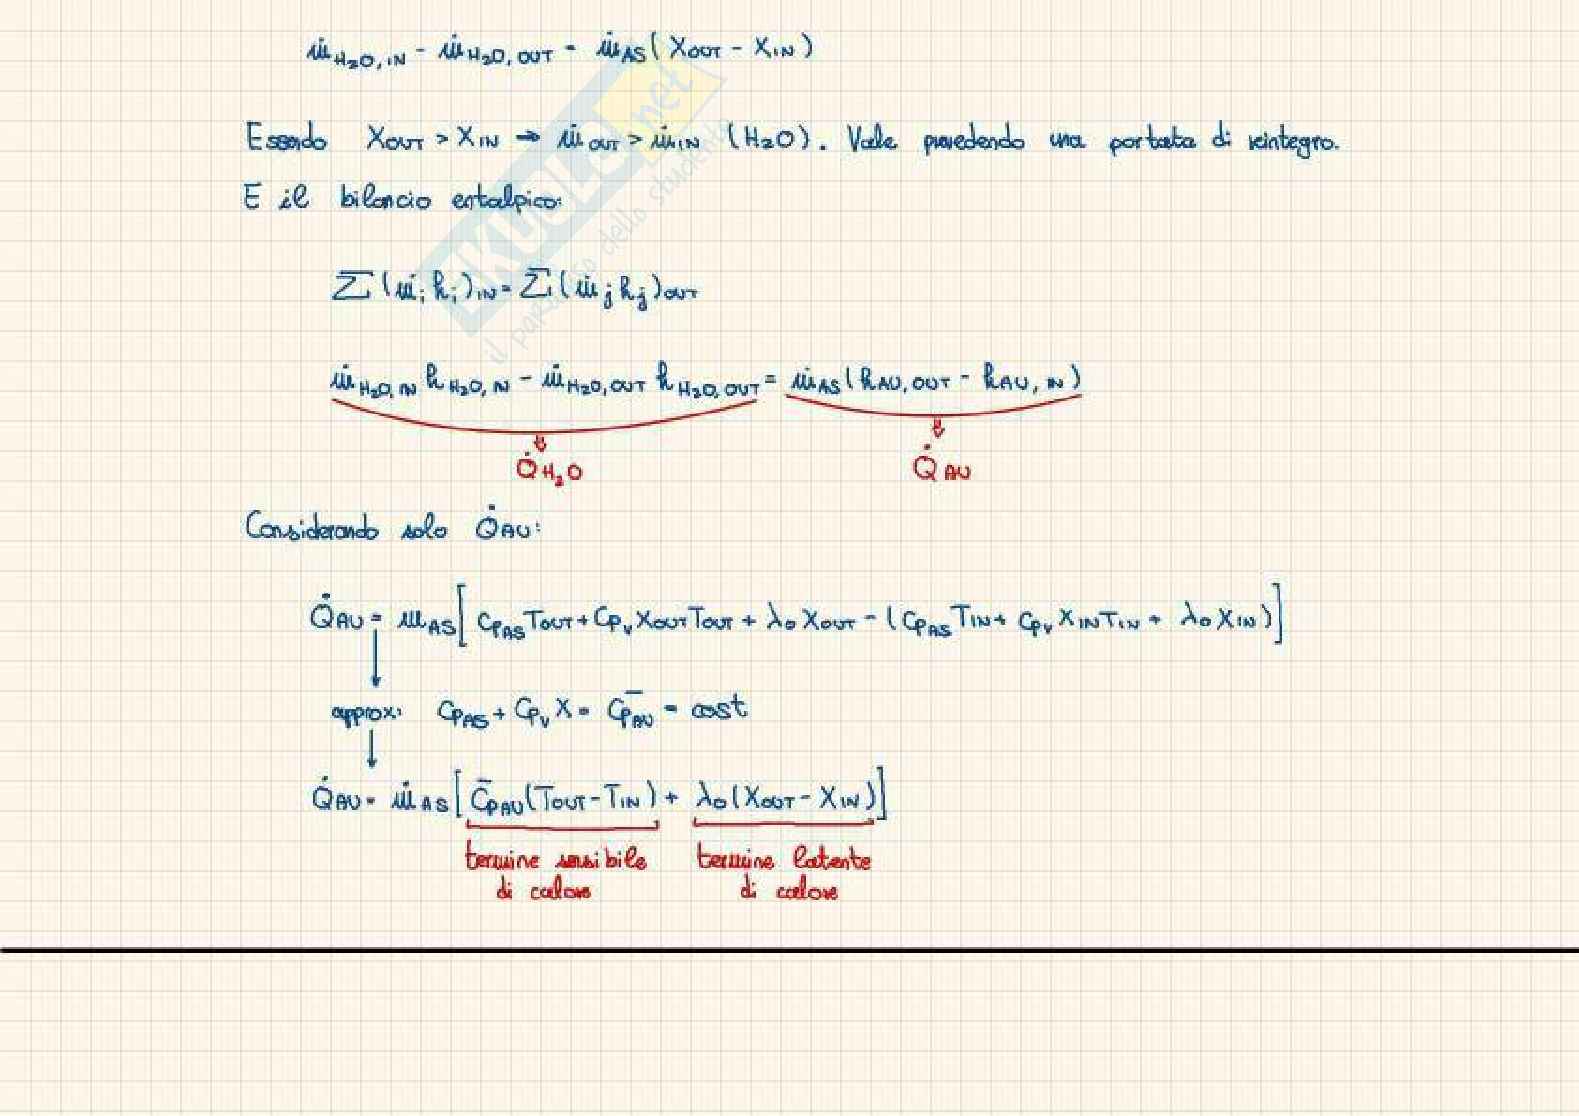 ṁ_H₂O,IN - ṁ_H₂O,OUT = ṁ_AS (X_OUT - X_IN)
Essendo X_OUT > X_IN ⇒ ṁ_OUT > ṁ_IN (H₂O). Vale prevedendo una portata di reintegro.
E il bilancio entalpico:
Σ(ṁᵢ hᵢ)_IN = Σ(ṁⱼ hⱼ)_OUT
ṁ_H₂O,IN h_H₂O,IN - ṁ_H₂O,OUT h_H₂O,OUT = ṁ_AS (h_AU,OUT - h_AU,IN)
Q̇_H₂O Q̇_AU
Considerando solo Q̇_AU:
Q̇_AU = ṁ_AS [ C_pAS T_OUT + C_pv X_OUT T_OUT + λ₀ X_OUT - (C_pAS T_IN + C_pv X_IN T_IN + λ₀ X_IN) ]
approx: C_pAS + C_pv X = C̄_pAU = cost
Q̇_AU = ṁ_AS [ C̄_pAU (T_OUT - T_IN) + λ₀ (X_OUT - X_IN) ]
termine sensibile termine latente
di calore di calore
SKUOLA.net
il paradiso dello studente